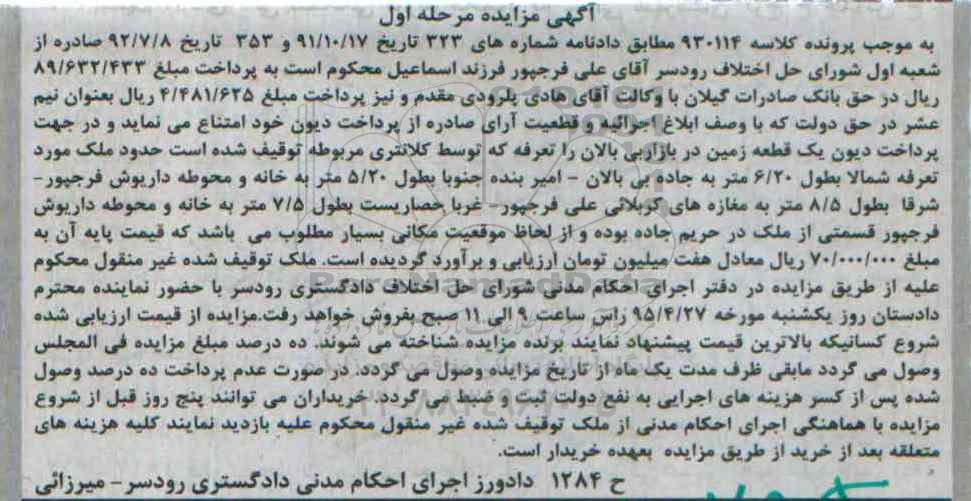 آگهی مزایده مرحله اول
به موجب پرونده کلاسه ۹۳۰۱۱۴ مطابق دادنامه شماره های ۳۲۳ تاریخ ۹۱/۱۰/۱۷ و ۳۵۳ تاریخ ۹۲/۷/۸ صادره از
شعبه اول شورای حل اختلاف رودسر آقای علی فرجپور فرزند اسماعیل محکوم است به پرداخت مبلغ ۸۹/۶۳۲/۴۳۳
ریال در حق بانک صادرات گیلان با وکالت آقای هادی پلرودی مقدم و نیز پرداخت مبلغ ۴/۴۸۱/۶۲۵ ریال بعنوان نیم
عشر در حق دولت که با وصف ابلاغ اجرائیه و قطعیت آرای صادره از پرداخت دیون خود امتناع می نماید و در جهت
پرداخت دیون یک قطعه زمین در بازاربی بالان را تعرفه که توسط کلانتری مربوطه توقیف شده است حدود ملک مورد
تعرفه شمالا بطول ۶/۲۰ متر به جاده بی بالان - امیر بنده جنوبا بطول ۵/۲۰ متر به خانه و محوطه داریوش فرجپور-
شرقا بطول ۸/۵ متر به مغازه های کربلائی علی فرجپور- غربا حصاریست بطول ۷/۵ متر به خانه و محوطه داریوش
فرجپور قسمتی از ملک در حریم جاده بوده و از لحاظ موقعیت مکانی بسیار مطلوب می باشد که قیمت پایه آن به
مبلغ ۷۰/۰۰۰/۰۰۰ ریال معادل هفت میلیون تومان ارزیابی و برآورد گردیده است. ملک توقیف شده غیر منقول محکوم
علیه از طریق مزایده در دفتر اجرای احکام مدنی شورای حل اختلاف دادگستری رودسر با حضور نماینده محترم
دادستان روز یکشنبه مورخه ۹۵/۴/۲۷ راس ساعت ۹ الی ۱۱ صبح بفروش خواهد رفت.مزایده از قیمت ارزیابی شده
شروع کسانیکه بالاترین قیمت پیشنهاد نمایند برنده مزایده شناخته می شوند. ده درصد مبلغ مزایده فی المجلس
وصول می گردد مابقی ظرف مدت یک ماه از تاریخ مزایده وصول می گردد. در صورت عدم پرداخت ده درصد وصول
شده پس از کسر هزینه های اجرایی به نفع دولت ثبت و ضبط می گردد. خریداران می توانند پنج روز قبل از شروع
مزایده با هماهنگی اجرای احکام مدنی از ملک توقیف شده غیر منقول محکوم علیه بازدید نمایند کلیه هزینه های
متعلقه بعد از خرید از طریق مزایده بعهده خریدار است.
ح ۱۲۸۴ دادورز اجرای احکام مدنی دادگستری رودسر- میرزائی